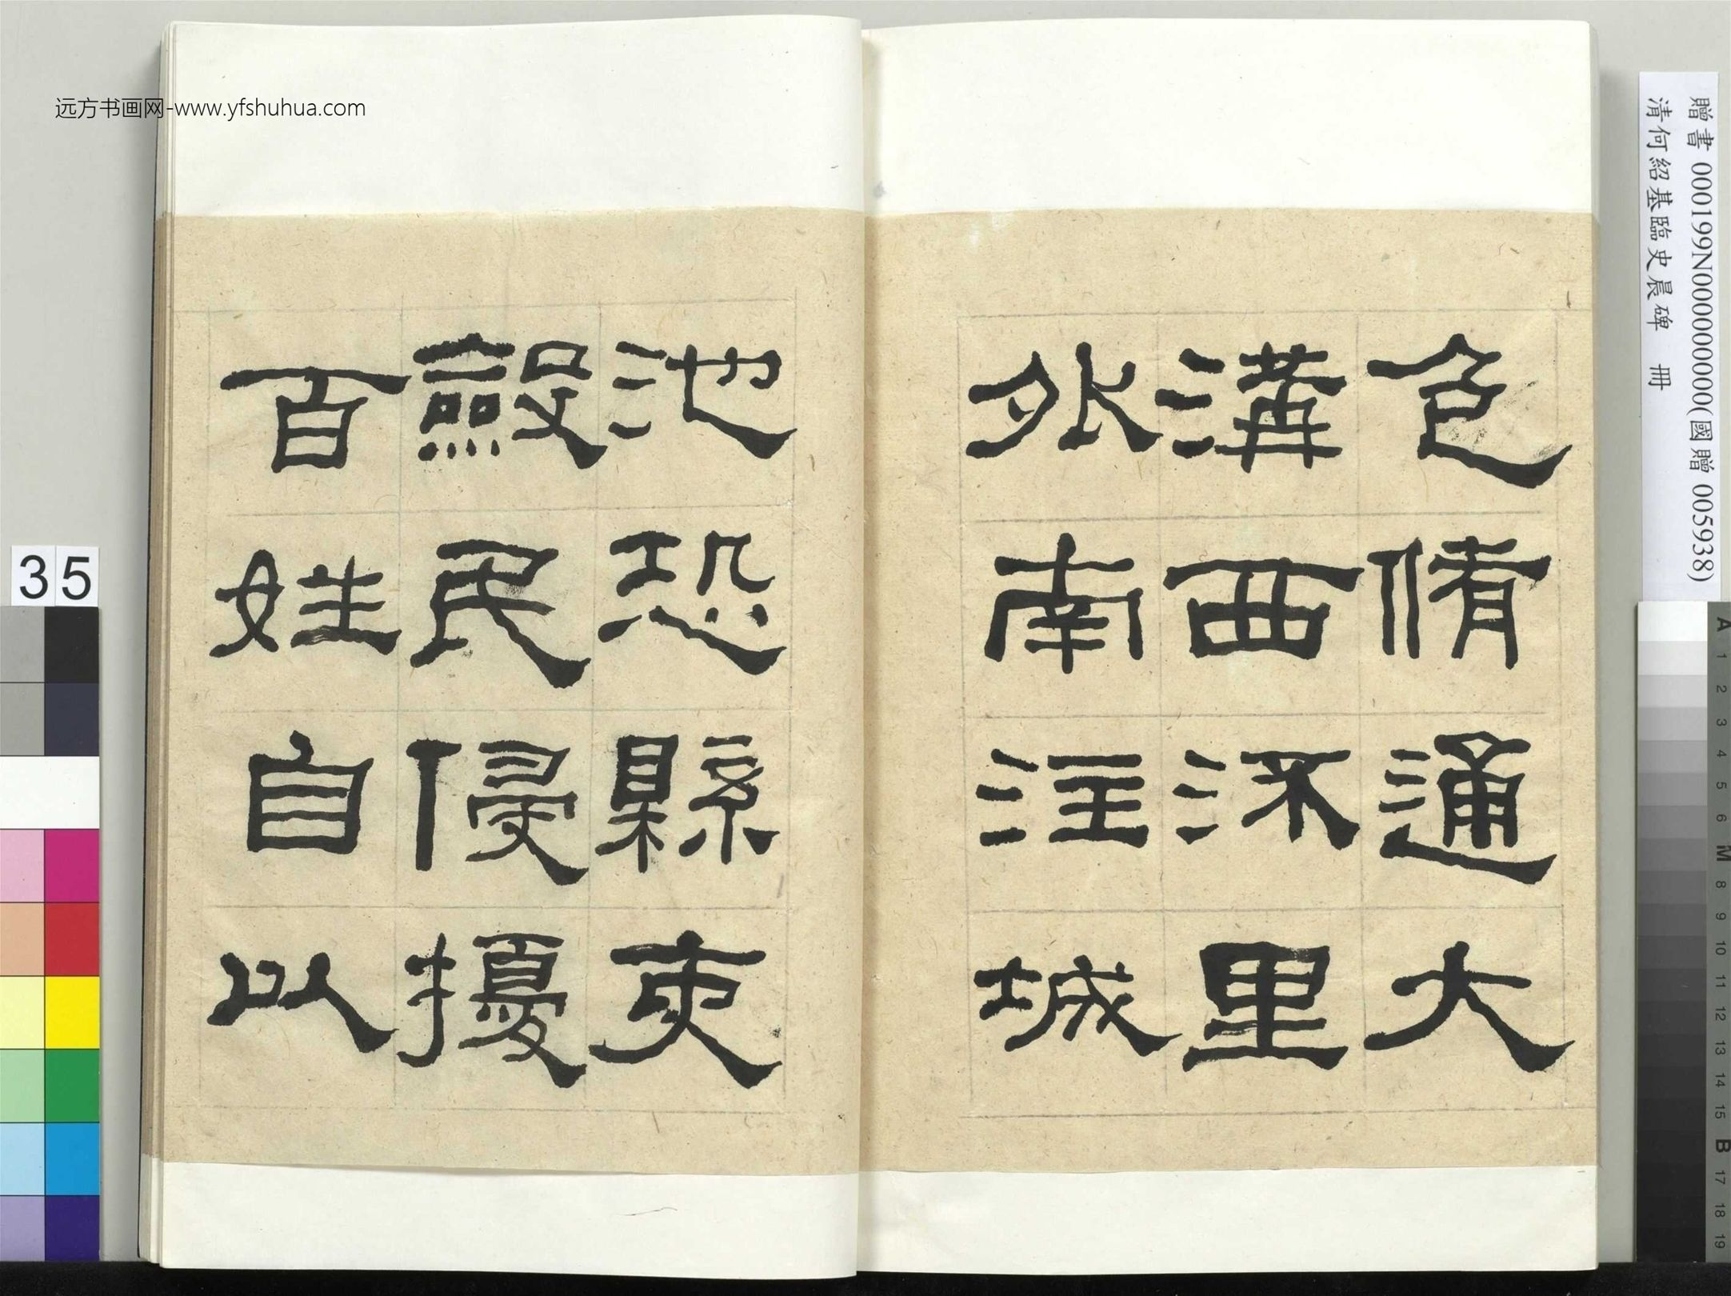 远方书画网-www.yfshuhua.com
贈書 000199N000000000(國贈 005938)
清何紹基臨史晨碑 冊
色脩通大
溝西流里
外南注城
池恐縣吏
斂民侵擾
百姓自以
35
A 1 2 3 4 5 6 M 8 9 10 11 12 13 14 15 B 17 18 19